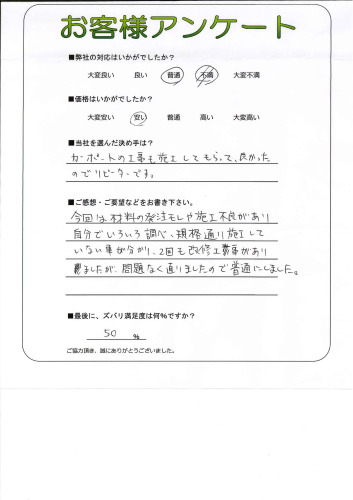 お客様アンケート
■弊社の対応はいかがでしたか?
大変良い 良い 普通 不満 大変不満
■価格はいかがでしたか?
大変安い 安い 普通 高い 大変高い
■当社を選んだ決め手は?
カーポートの工事も施工してもらって、良かった
のでリピーターです。
■ご感想・ご要望などをお書き下さい。
今回は材料の発注モレや施工不良があり
自分でいろいろ調べ、規格通り施工して
いない事が分かり、2回も改修工事があり
ましたが、問題なく直りましたので普通にしました。
■最後に、ズバリ満足度は何%ですか?
50 %
ご協力頂き、誠にありがとうございました。